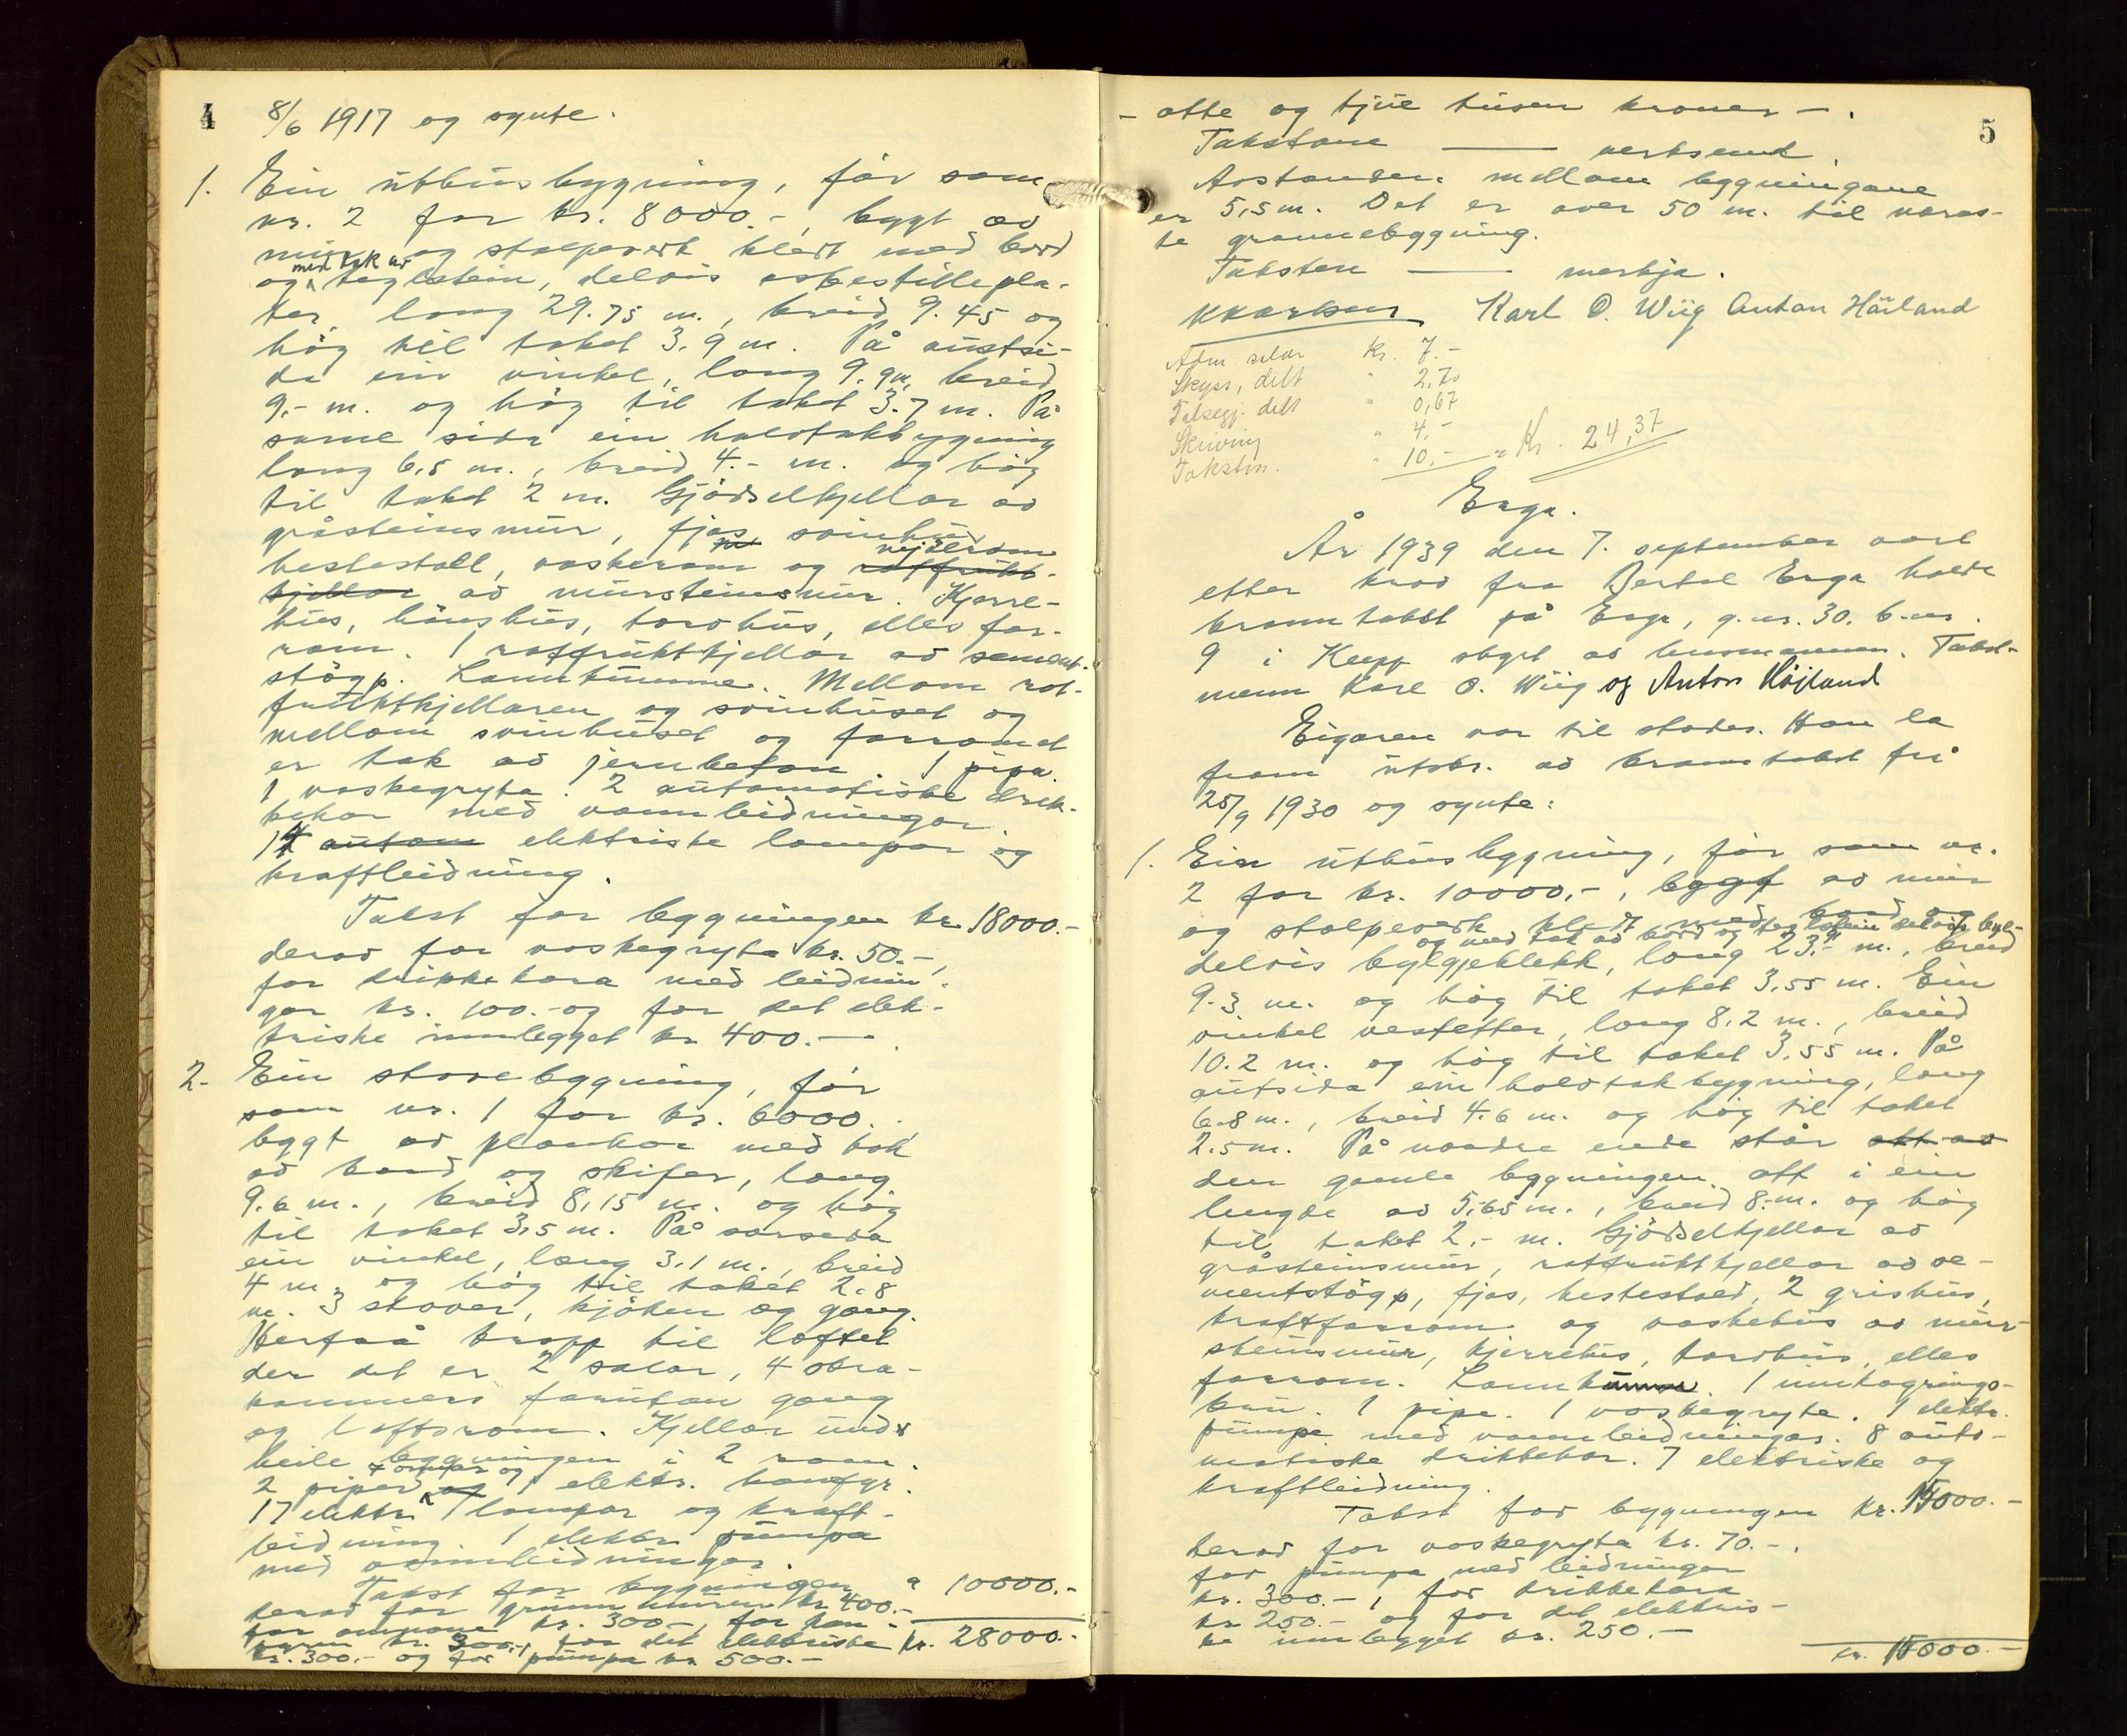 4
8/6 1917 og synte.
1. Ein uthusbygning, før som
nr. 2 for kr. 8000.-, bygt av
mur og stolpeverk klædt med bord
og med tak av teglstein, delvis asbestilleplater
ter, lang 29.75 m., breid 9.45 og
høg til taket 3,9 m. På austsi-
da ein vinkel, lang 9.9 m, breid
9,- m. og høg til taket 3.7 m. På
same sida ein halvtakbygning
lang 6,5 m., breid 4.- m. og høg
til taket 2 m. Gjødselkjellar av
gråsteinsmur, fjøs, svinhus
hestestall, vaskerom og mjølrom rotfrukt-
kjellar av mursteinsmur. Kjerre-
hus, hønshus, torvhus, elles for-
rom. 1 rotfruktkjellar av sement-
støyp. Lauvtømme. Mellom rot-
fruktkjellaren og svinhuset og
mellom svinhuset og forromet
er tak av jernbeton. 1 pipa.
1 vaskegryta. 2 automatiske drik-
kekar med vannleidningar.
14 autom elektriske lampor og
kraftleidning.
Takst for bygningen kr. 18000.-
derav for vaskegryta kr. 50.-,
for drikkekara med leidnin-
gar kr. 100.- og for det elek-
triske innlegget kr 400.-.
2. Ein stovebygning, før
som nr. 1 for kr. 6000.,
bygt av plankar med tak
av bord og skifer, lang
9.6 m., breid 8,15 m. og høg
til taket 3,5 m. På sørsida
ein vinkel, lang 3,1 m., breid
4 m. og høg til taket 2.8
m. 3 stover, kjøken og gang.
Herfrå trapp til loftet
der det er 2 salar, 4 sova-
kammers forutan gang
og loftsrom. Kjellar under
heile bygningen i 2 rom.
2 piper og 4 omnar og 1 elektr. komfyr.
17 elektr. lampor og kraft-
leidning. 1 elektr. pumpa
med vannleidningar.
Takst for bygningen " 10000.-
derav for grunnmuren kr 400.-
for omnane kr. 300-, for kom-
fyren kr. 300.-, for det elektriske kr. 28000.-
kr. 300.- og for pumpa kr. 500.-
5
- otte og tjue tusen kroner - .
Takstane —— verksemd.
Avstanden mellom bygningane
er 5,5 m. Det er over 50 m. til næras-
te grannebygning.
Taksten —— merkja.
Karl O. Wiig Anton Håland
Kr. 7.-
Skyss, delt " 2,70
delt " 0,67
Skriving " 4,-
Takstm. " 10,- " Kr. 24,37
Erga.
År 1939 den 7. september vart
etter krav fra Bertel Erga halde
branntakst på Erga, g.nr. 30. b.nr.
9 i Klepp styrt av lensmannen. Takst-
menn Karl O. Wiig og Anton Höjland
Eigaren var til stades. Han la
fram utskr. av branntakst frå
25/9 1930 og synte:
1. Ein uthusbygning, før som nr.
2 for kr. 10000,-, bygt av mur
og stolpeverk klædt med bord og
og med tak av bord og teglstein delvis byl-
delvis bylgjeblekk, lang 23.- m., breid
9.3 m. og høg til taket 3,55 m. Ein
vinkel vestetter, lang 8.2 m., breid
10.2 m. og høg til taket 3,55 m. På
autsida ein halvtakbygning, lang
6.8 m., breid 4.6 m. og høg til taket
2.5 m. På nordre ende står att av
den gamle bygningen att i ein
lengde av 5,65 m., breid 8.- m. og høg
til taket 2,- m. Gjødselkjellar av
gråsteinsmur, rotfruktkjellar av se-
mentstøyp, fjøs, hestestall, 2 grishus,
kraftforrom og vaskehus av mur-
steinsmur, kjerrehus, torvhus, elles
forrom. 1 innkøyrings-
bru. 1 pipe. 1 vaskegryte. 1 elektr.
pumpe med vannleidningar. 8 auto-
matiske drikkekar. 7 elektriske og
kraftleidning.
Takst for bygningen kr. 15000.-
derav for vaskegryta kr. 70.-,
for pumpa med leidningar
kr. 300.-, for drikkekara
kr 250.- og for det elektris-
ke innlegget kr. 250.-
kr. 15000.-